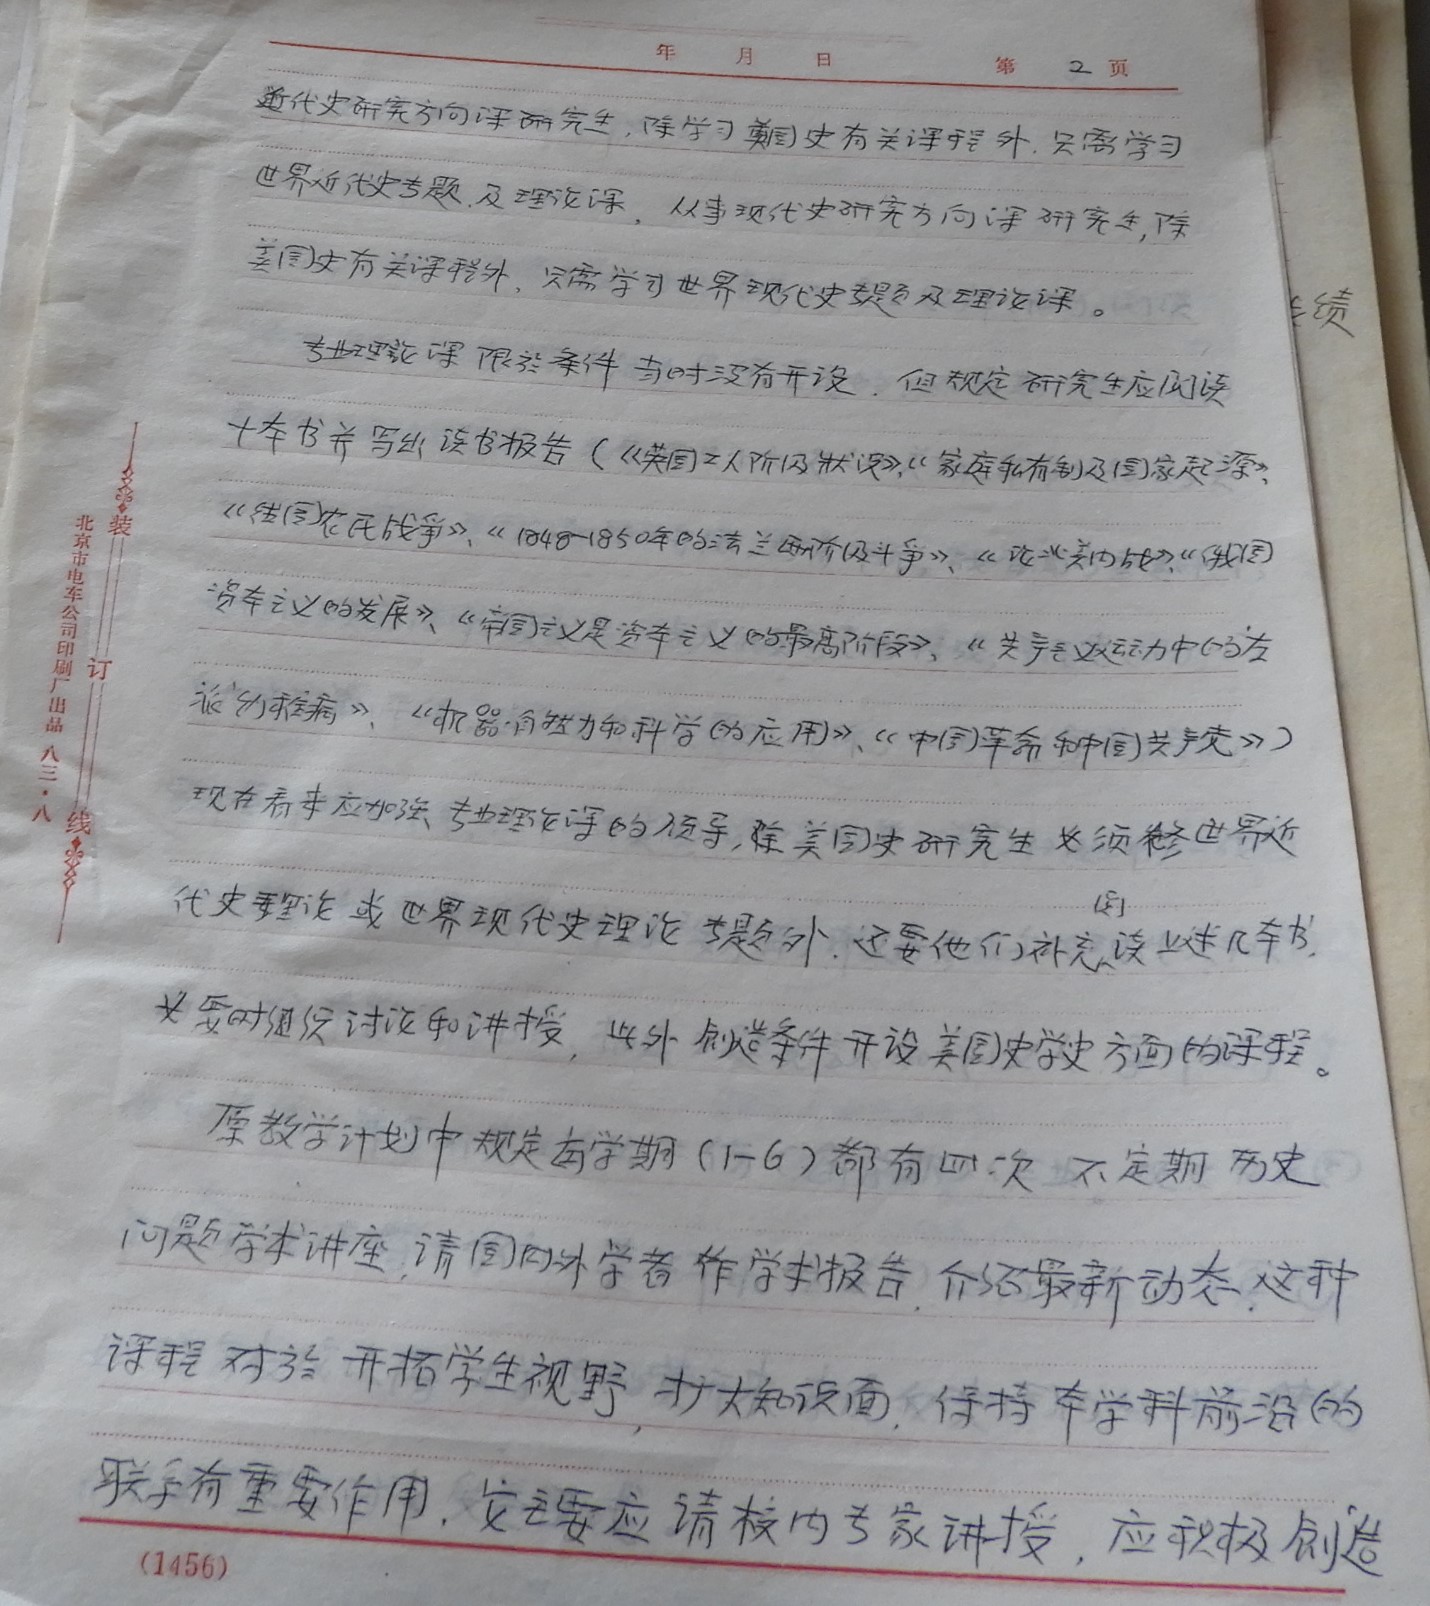 年 月 日 第 2 页
近代史研究方向课研究生，除学习美国史有关课程外，只需学习
世界近代史专题及理论课，从事现代史研究方向课研究生，除
美国史有关课程外，只需学习世界现代史专题及理论课。
专业理论课限於条件当时没有开设，但规定研究生应阅读
十本书并写出读书报告（《英国工人阶级状况》、《家庭私有制及国家起源》、
《德国农民战争》、《1848-1850年的法兰西阶级斗争》、《论北美内战》、《俄国
资本主义的发展》、《帝国主义是资本主义的最高阶段》、《共产主义运动中的'左
派'幼稚病》、《机器·自然力和科学的应用》、《中国革命和中国共产党》）
现在看来应加强专业理论课的领导，除美国史研究生必须修世界近
代史理论或世界现代史理论专题外，还要他们补充阅读上述几本书，
必要时组织讨论和讲授，此外创造条件开设美国史学史方面的课程。
原教学计划中规定每学期（1-6）都有四次不定期历史
问题学术讲座，请国内外学者作学术报告，介绍最新动态，这种
课程对於开拓学生视野，扩大知识面，保持本学科前沿的
联系有重要作用，主要应请校内专家讲授，应积极创造
(1456)
装订线
北京市电车公司印刷厂出品 八三·八
绩